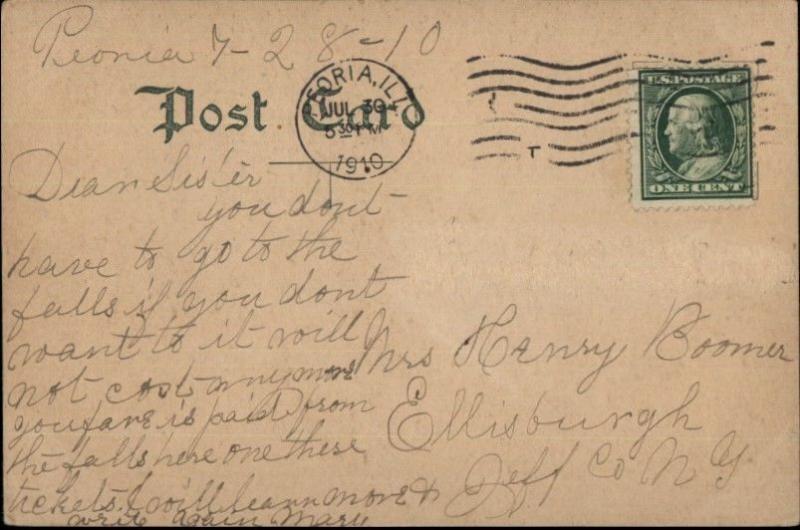 Peoria 7-28-10
Post Card
PEORIA, ILL.
JUL 30
5 30 PM
1910
U.S. POSTAGE
ONE CENT
Dear Sister
you dont
have to go to the
falls if you dont
want to it will
not cost any more
you fare is paid from
the falls here one these
tickets I will learn more &
write again Mary
Mrs Henry Boomer
Ellisburgh
Jeff Co N Y